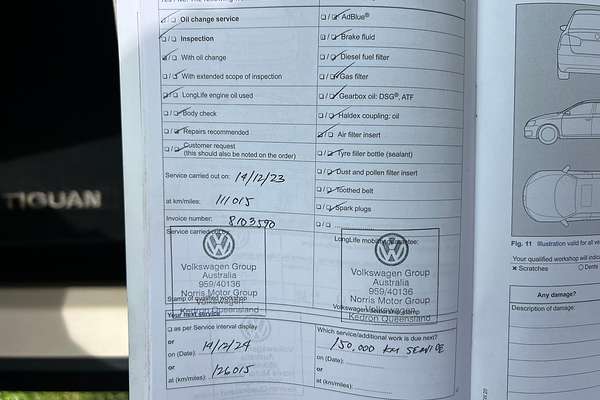 ☐ / ☐ Oil change service
☐ / ☐ Inspection
☐ / ☐ With oil change
☐ / ☐ With extended scope of inspection
☐ / ☐ LongLife engine oil used
☐ / ☐ Body check
☐ / ☐ Repairs recommended
☐ / ☐ Customer request
(this should also be noted on the order)
Service carried out on: 14/12/23
at km/miles: 111015
Invoice number: 8103590
Service carried out by
Volkswagen Group
Australia
959/40136
Norris Motor Group
Volkswagen
Kedron Queensland
Stamp of qualified workshop
Your next service
☐ as per Service interval display
or
on (Date): 14/12/24
or
at (km/miles): 126015
☐ / ☐ AdBlue®
☐ / ☐ Brake fluid
☐ / ☐ Diesel fuel filter
☐ / ☐ Gas filter
☐ / ☐ Gearbox oil: DSG®, ATF
☐ / ☐ Haldex coupling: oil
☐ / ☐ Air filter insert
☐ / ☐ Tyre filler bottle (sealant)
☐ / ☐ Dust and pollen filter insert
☐ / ☐ Toothed belt
☐ / ☐ Spark plugs
☐ / ☐
LongLife mobility guarantee:
Volkswagen Group
Australia
959/40136
Norris Motor Group
Volkswagen
Kedron Queensland
Which service/additional work is due next?
150,000 KM SERVICE
on (Date):
or
at (km/miles):
TIGUAN
Fig. 11 Illustration valid for all
Your qualified workshop will
☒ Scratches ☐ Dents
Any damage?
Description of damage: